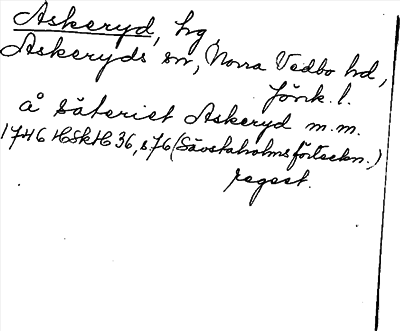 Askeryd, hg,
Askeryds sn, Norra Vedbo hd,
Jönk. l.
å säteriet Askeryd m.m.
1746 HSkH 36, s. 76 (Sävstaholmsförteckn.)
regest.